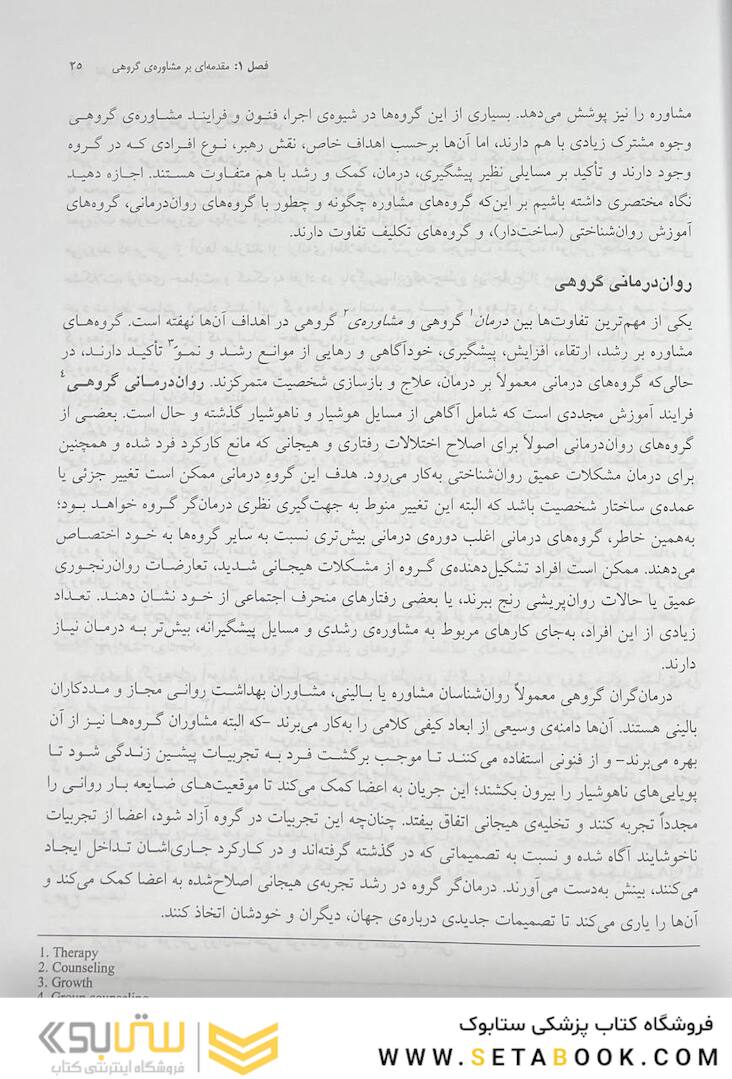 فصل ۱: مقدمه‌ای بر مشاوره‌ی گروهی ۲۵
مشاوره را نیز پوشش می‌دهد. بسیاری از این گروه‌ها در شیوه‌ی اجرا، فنون و فرایند مشاوره‌ی گروهی
وجوه مشترک زیادی با هم دارند، اما آن‌ها برحسب اهداف خاص، نقش رهبر، نوع افرادی که در گروه
وجود دارند و تأکید بر مسایلی نظیر پیشگیری، درمان، کمک و رشد با هم متفاوت هستند. اجازه دهید
نگاه مختصری داشته باشیم بر این‌که گروه‌های مشاوره چگونه و چطور با گروه‌های روان‌درمانی، گروه‌های
آموزش روان‌شناختی (ساخت‌دار)، و گروه‌های تکلیف تفاوت دارند.
روان‌درمانی گروهی
یکی از مهم‌ترین تفاوت‌ها بین درمان۱ گروهی و مشاوره‌ی۲ گروهی در اهداف آن‌ها نهفته است. گروه‌های
مشاوره بر رشد، ارتقاء، افزایش، پیشگیری، خودآگاهی و رهایی از موانع رشد و نمو۳ تأکید دارند، در
حالی‌که گروه‌های درمانی معمولاً بر درمان، علاج و بازسازی شخصیت متمرکزند. روان‌درمانی گروهی۴
فرایند آموزش مجددی است که شامل آگاهی از مسایل هوشیار و ناهوشیار گذشته و حال است. بعضی از
گروه‌های روان‌درمانی اصولاً برای اصلاح اختلالات رفتاری و هیجانی که مانع کارکرد فرد شده و همچنین
برای درمان مشکلات عمیق روان‌شناختی به‌کار می‌رود. هدف این گروه درمانی ممکن است تغییر جزئی یا
عمده‌ی ساختار شخصیت باشد که البته این تغییر منوط به جهت‌گیری نظری درمان‌گر گروه خواهد بود؛
به‌همین خاطر، گروه‌های درمانی اغلب دوره‌ی درمانی بیش‌تری نسبت به سایر گروه‌ها به خود اختصاص
می‌دهند. ممکن است افراد تشکیل‌دهنده‌ی گروه از مشکلات هیجانی شدید، تعارضات روان‌رنجوری
عمیق یا حالات روان‌پریشی رنج ببرند، یا بعضی رفتارهای منحرف اجتماعی از خود نشان دهند. تعداد
زیادی از این افراد، به‌جای کارهای مربوط به مشاوره‌ی رشدی و مسایل پیشگیرانه، بیش‌تر به درمان نیاز
دارند.
درمان‌گران گروهی معمولاً روان‌شناسان مشاوره یا بالینی، مشاوران بهداشت روانی مجاز و مددکاران
بالینی هستند. آن‌ها دامنه‌ی وسیعی از ابعاد کیفی کلامی را به‌کار می‌برند -که البته مشاوران گروه‌ها نیز از آن
بهره می‌برند- و از فنونی استفاده می‌کنند تا موجب برگشت فرد به تجربیات پیشین زندگی شود تا
پویایی‌های ناهوشیار را بیرون بکشند؛ این جریان به اعضا کمک می‌کند تا موقعیت‌های ضایعه بار روانی را
مجدداً تجربه کنند و تخلیه‌ی هیجانی اتفاق بیفتد. چنان‌چه این تجربیات در گروه آزاد شود، اعضا از تجربیات
ناخوشایند آگاه شده و نسبت به تصمیماتی که در گذشته گرفته‌اند و در کارکرد جاری‌اشان تداخل ایجاد
می‌کنند، بینش به‌دست می‌آورند. درمان‌گر گروه در رشد تجربه‌ی هیجانی اصلاح‌شده به اعضا کمک می‌کند و
آن‌ها را یاری می‌کند تا تصمیمات جدیدی درباره‌ی جهان، دیگران و خودشان اتخاذ کنند.
1. Therapy
2. Counseling
3. Growth
4. Group counseling
فروشگاه کتاب پزشکی ستابوک
WWW.SETABOOK.COM
ستابوک
فروشگاه اینترنتی کتاب